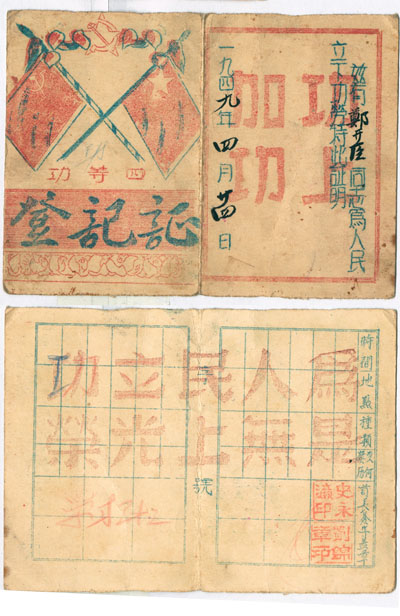 四等功
登記証
茲有鄭臣同志為人民
立下功勞特此証明
功上
加功
一九四九年四月廿四日
為人民立功
是無上光榮
號
時間地點種類